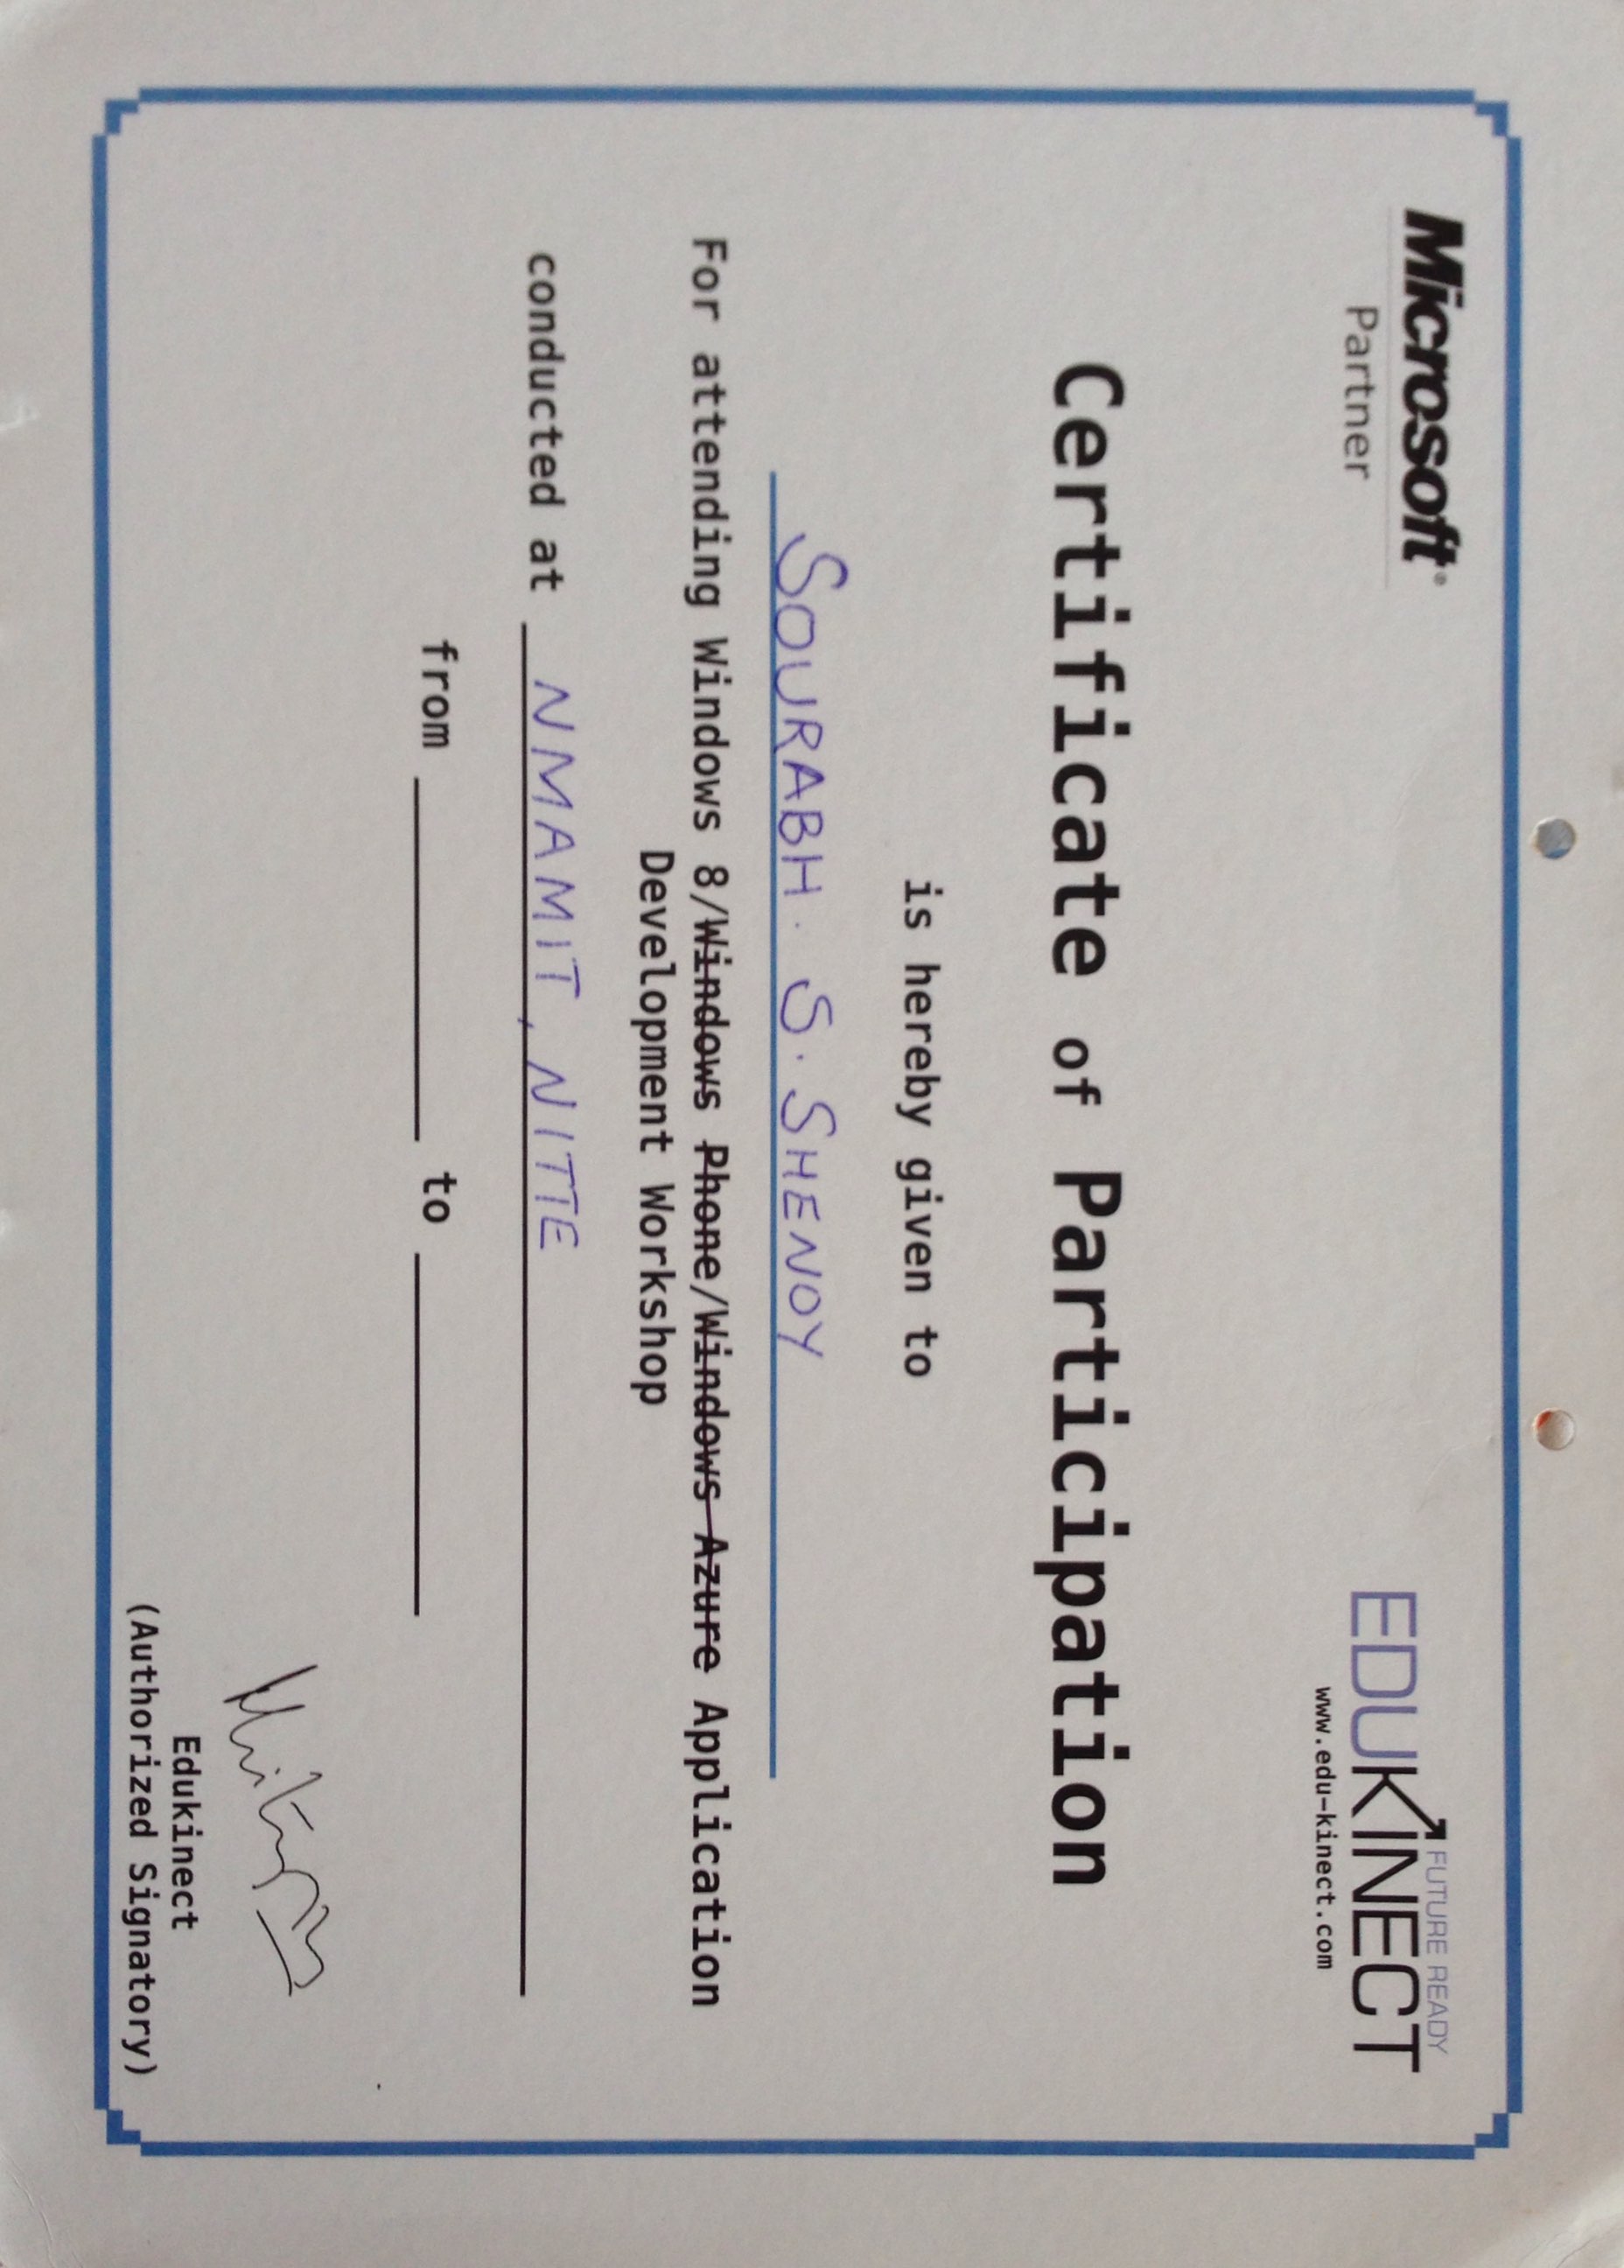 Microsoft®
Partner
FUTURE READY
EDUKINECT
www.edu-kinect.com
Certificate of Participation
is hereby given to
SOURABH. S. SHENOY
For attending Windows 8/Windows Phone/Windows Azure Application
Development Workshop
conducted at NMAMIT, NITTE
from ____________ to ____________
Edukinect
(Authorized Signatory)